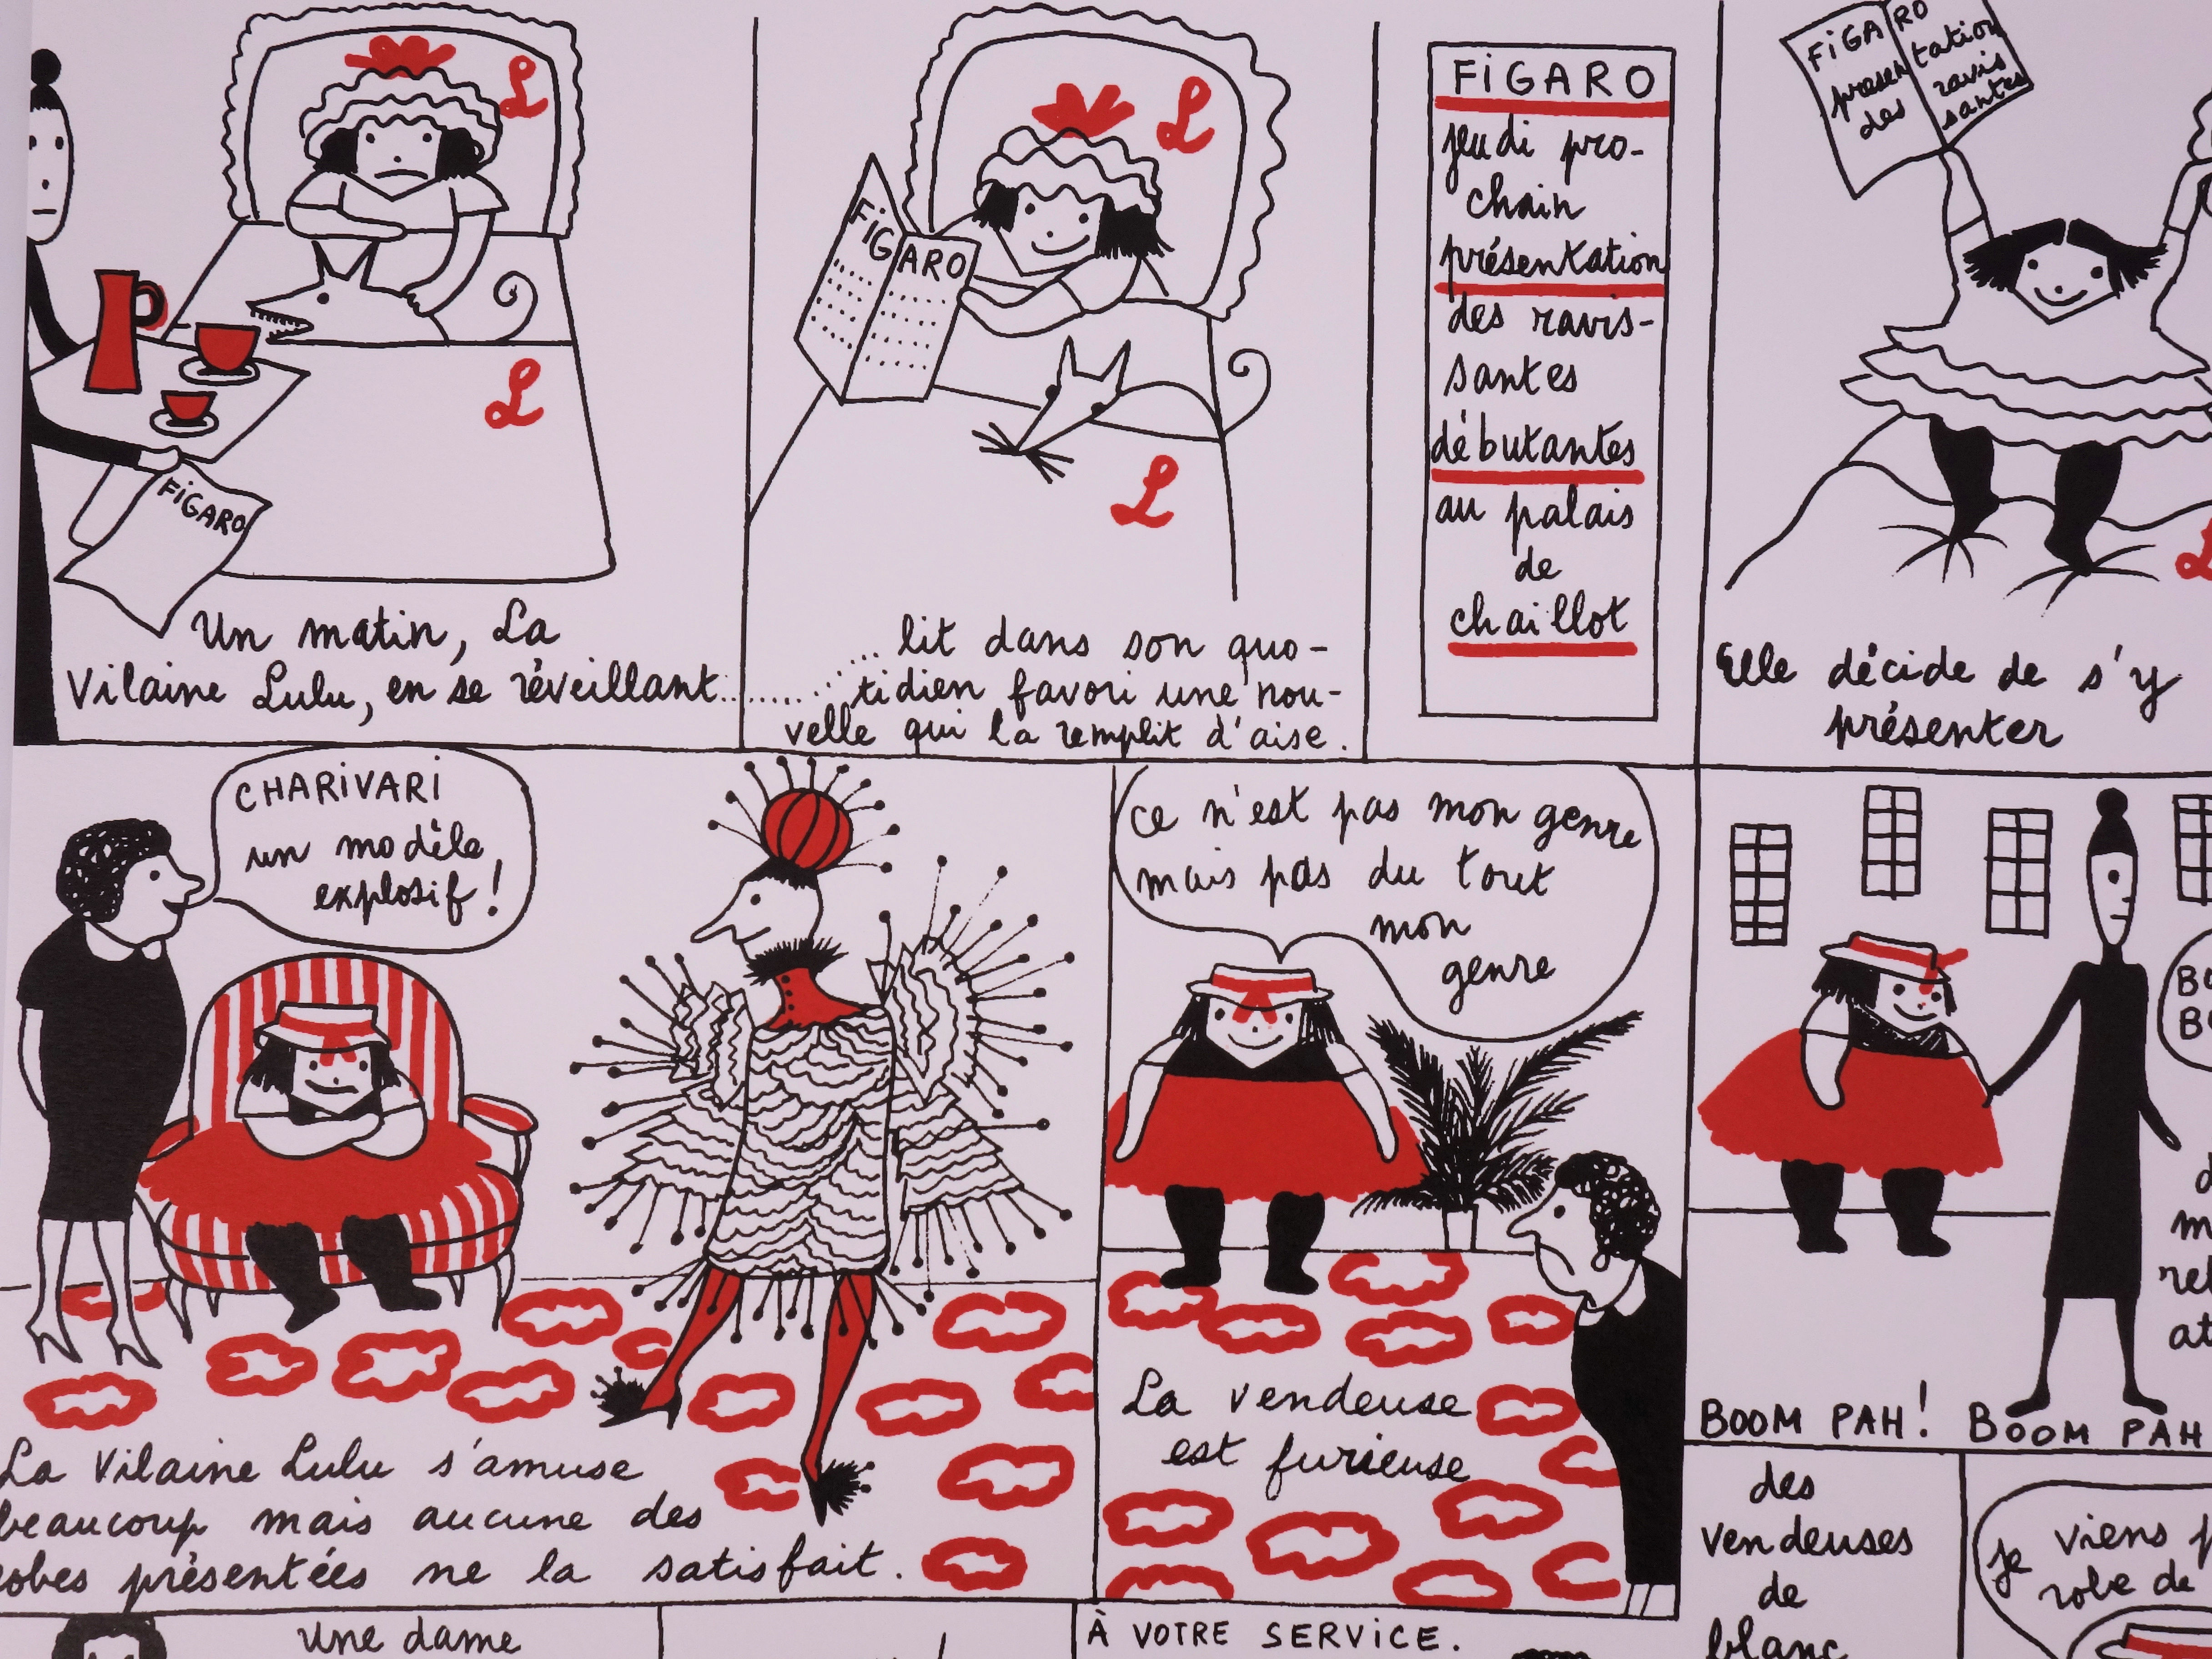 L
L
FiGARO
Un matin, La
Vilaine Lulu, en se réveillant........
L
FiGARO
L
... lit dans son quo-
tidien favori une nou-
velle qui la remplit d'aise.
FiGARO
jeudi pro-
chain
présentation
des ravis-
santes
débutantes
au palais
de
chaillot
FiGARO
presentation
des ravis
santes
L
Elle décide de s'y
présenter
CHARiVARi
un modèle
explosif!
La Vilaine Lulu s'amuse
beaucoup mais aucune des
robes présentées ne la satisfait.
ce n'est pas mon genre
mais pas du tout
mon
genre
La vendeuse
est furieuse
BOOM PAH! BOOM PAH
une dame
À VOTRE SERViCE.
des
vendeuses
de
blanc
je viens
robe de